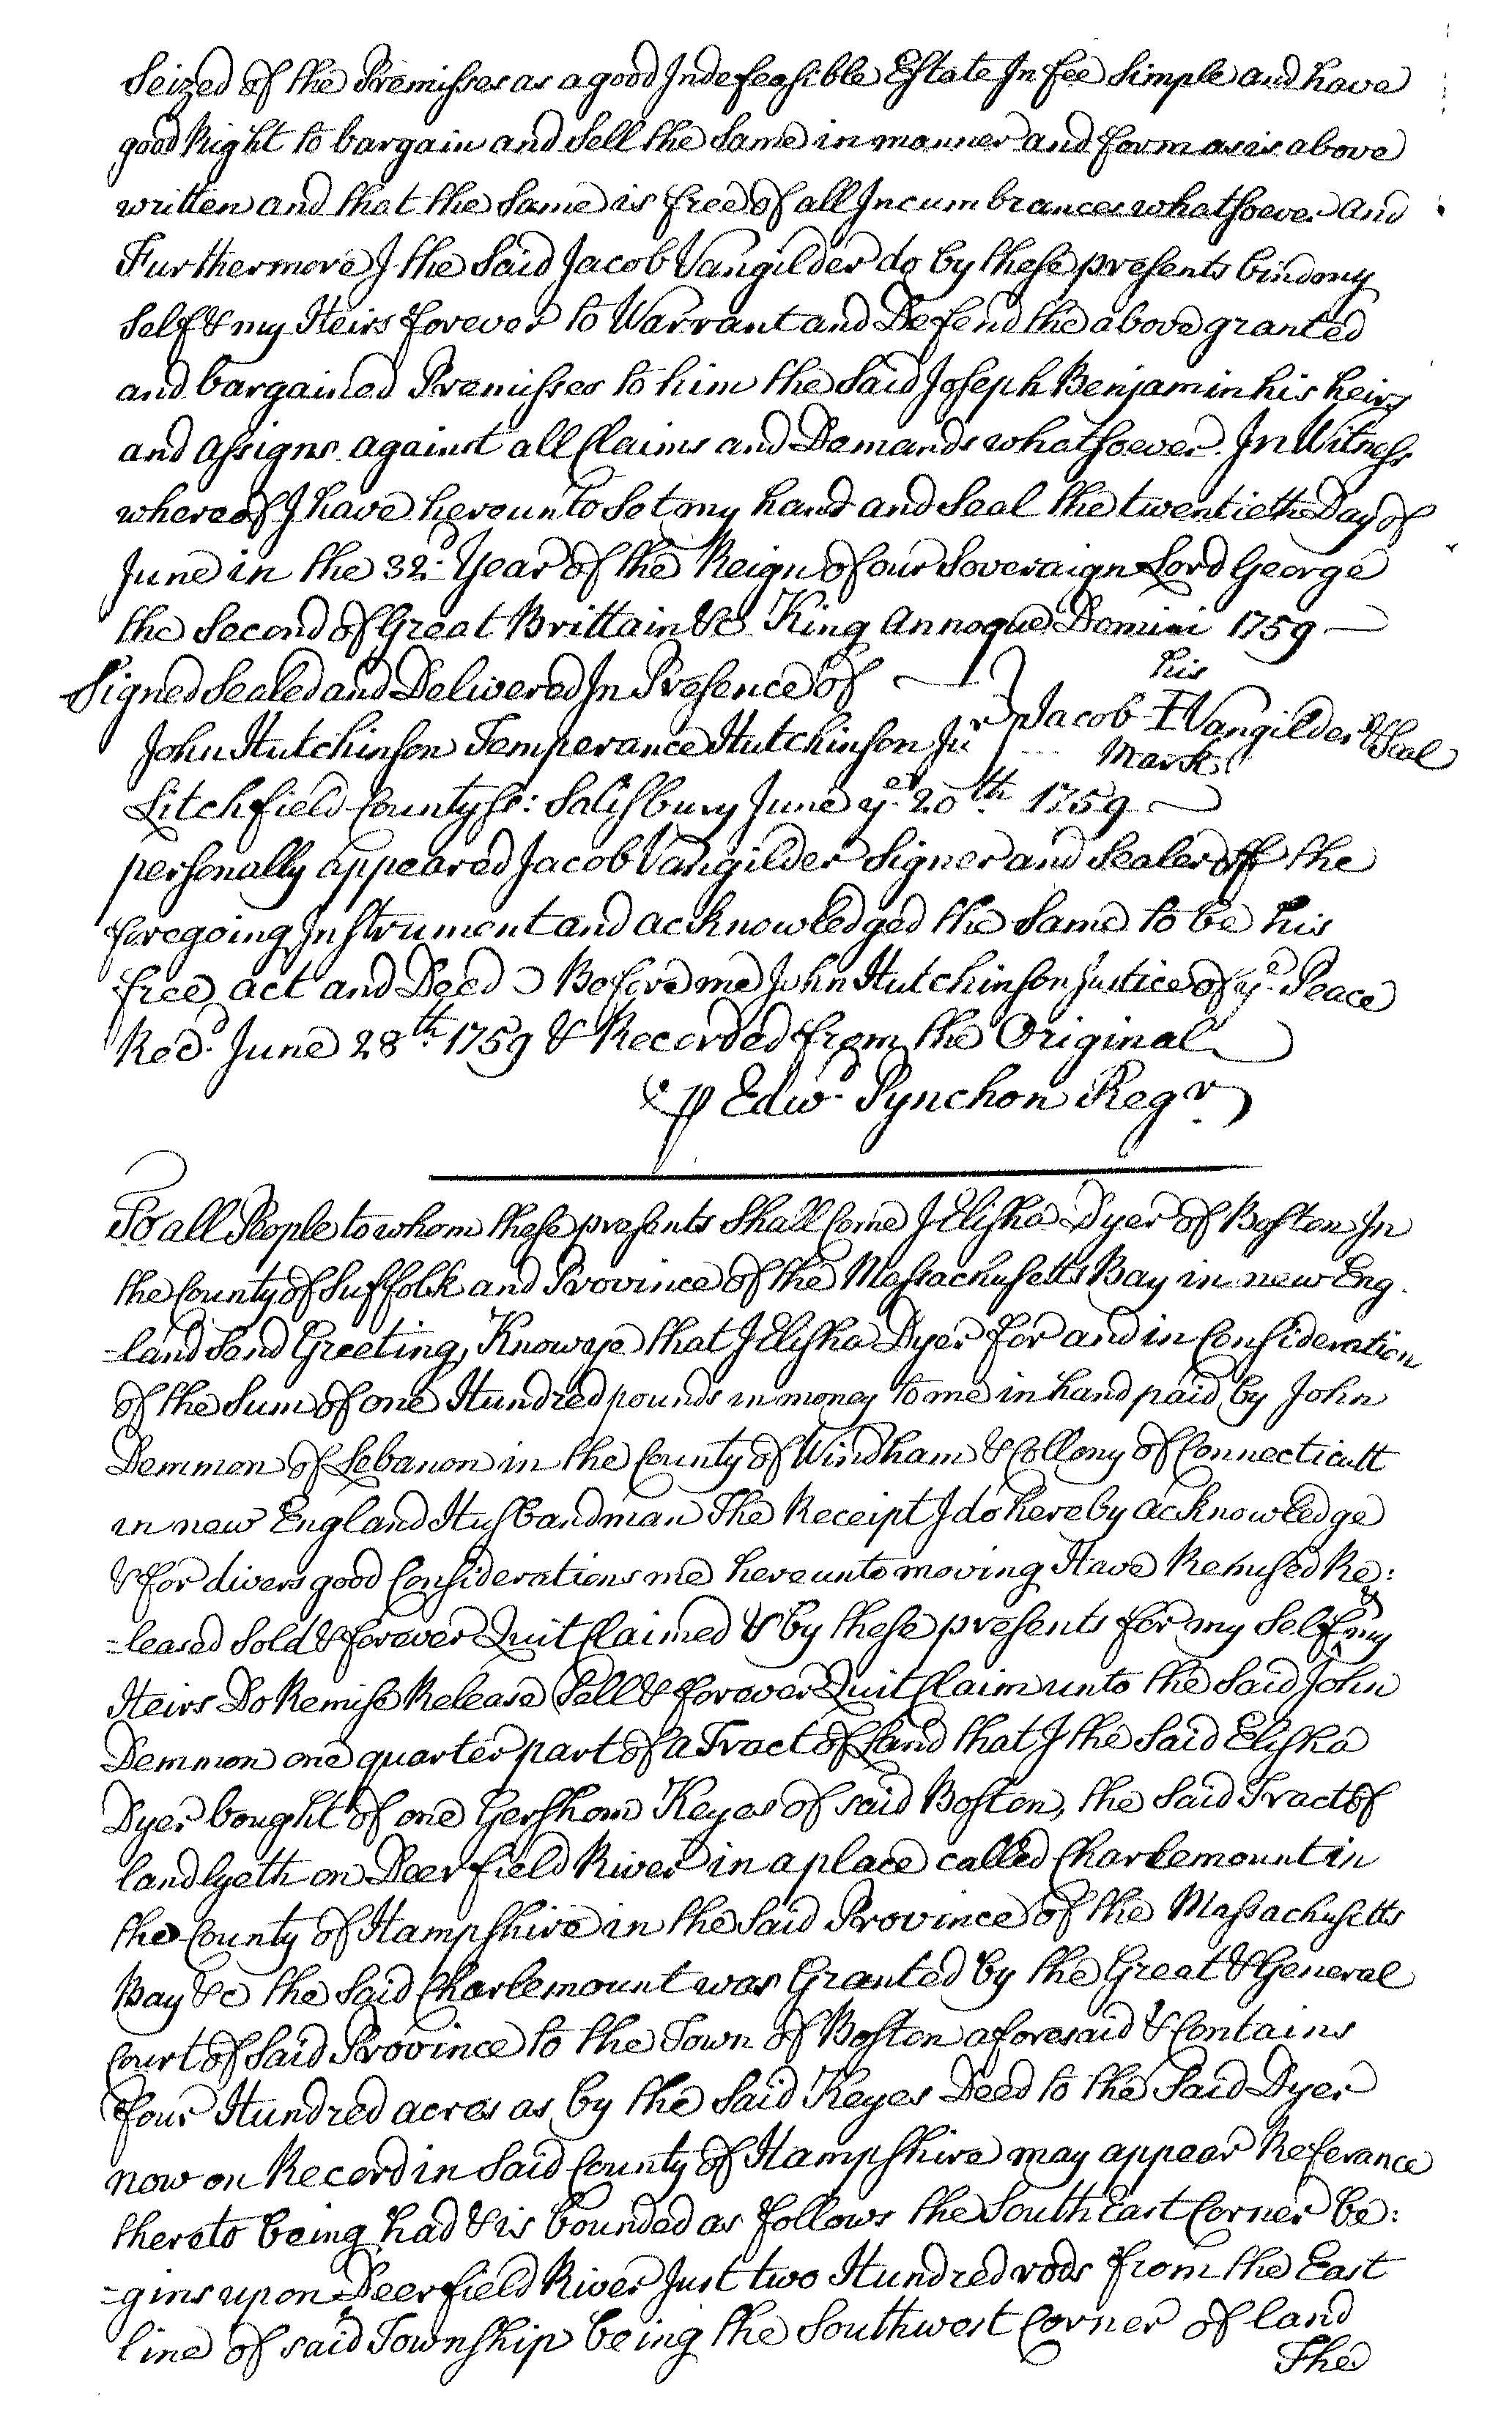 Seized of the Premisses as a good Indefeasible Estate In fee Simple and have
good Right to bargain and Sell the Same in manner and form as is above
written and that the Same is free of all Incumbrances whatsoever and
Furthermore I the Said Jacob Vangilder do by these presents bind my
Self & my Heirs forever to Warrant and Defend the above granted
and bargained Premisses to him the Said Joseph Benjamin his heirs
and assigns against all Claims and Demands whatsoever. In Witness
whereof I have hereunto Set my hand and Seal the twentieth Day of
June in the 32d. Year of the Reign of our Soveraign Lord George
the Second of Great Brittain &c King Annoque Domini 1759
Signed Sealed and Delivered In Presence of
his
John Hutchinson Temperance Hutchinson Jur Jacob I Vangilder & Seal
Mark
Litchfield County ss: Salisbury June ye 20th. 1759
personally appeared Jacob Vangilder Signer and Sealer off the
foregoing Instrument and acknowledged the Same to be his
free act and Deed Before me John Hutchinson Justice of ye. Peace
Recd. June 28th. 1759 & Recorded from the Original
& p Edwd. Pynchon Regr
To all People to whom these presents Shall Come I Elisha Dyer of Boston In
the County of Suffolk and Province of the Massachusetts Bay in new Eng
=land Send Greeting, Know ye that I Elisha Dyer for and in Consideration
of the Sum of one Hundred pounds in money to me in hand paid by John
Demmon of Lebanon in the County of Windham & Collony of Connecticutt
in new England Husbandman The Receipt I do hereby acknowledge
& for divers good Considerations me hereunto moving Have Remised Re:
=leased Sold & forever Quit Claimed & by these presents for my Self & my
Heirs Do Remise Release Sell & forever Quit Claim unto the Said John
Demmon one quarter part of a Tract of Land that I the Said Elisha
Dyer bought of one Gershom Keyes of said Boston, the Said Tract of
land lyeth on Deerfield River in a place called Charlemount in
the County of Hampshire in the Said Province of the Massachusetts
Bay &c the Said Charlemount was Granted by the Great & General
Court of Said Province to the Town of Boston aforesaid & Contains
Four Hundred acres as by the Said Keyes Deed to the Said Dyer
now on Record in Said County of Hampshire may appear Referance
thereto being had & is bounded as follows the South East Corner be:
=gins upon Deerfield River Just two Hundred rods from the East
line of said Township being the Southwest Corner of land
The